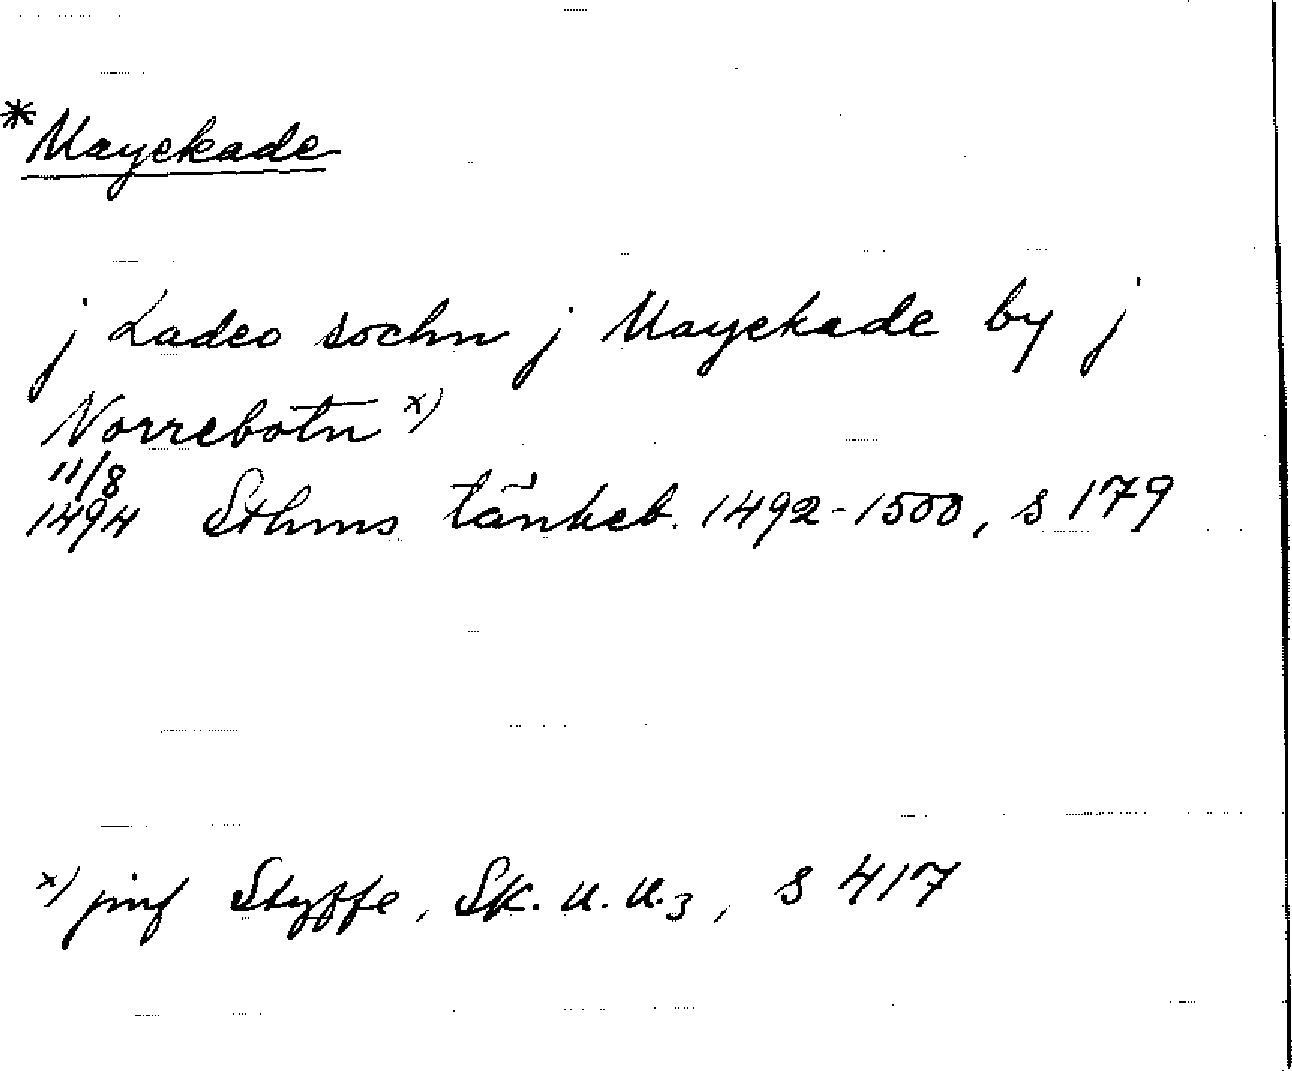 *Mayekade
j Ladeo sochn j Mayekade by j
Norrebotn x)
11/8
1494 Sthms tänkeb. 1492-1500, s 179
x) jmf Styffe, Sk. u. u.3, s 417